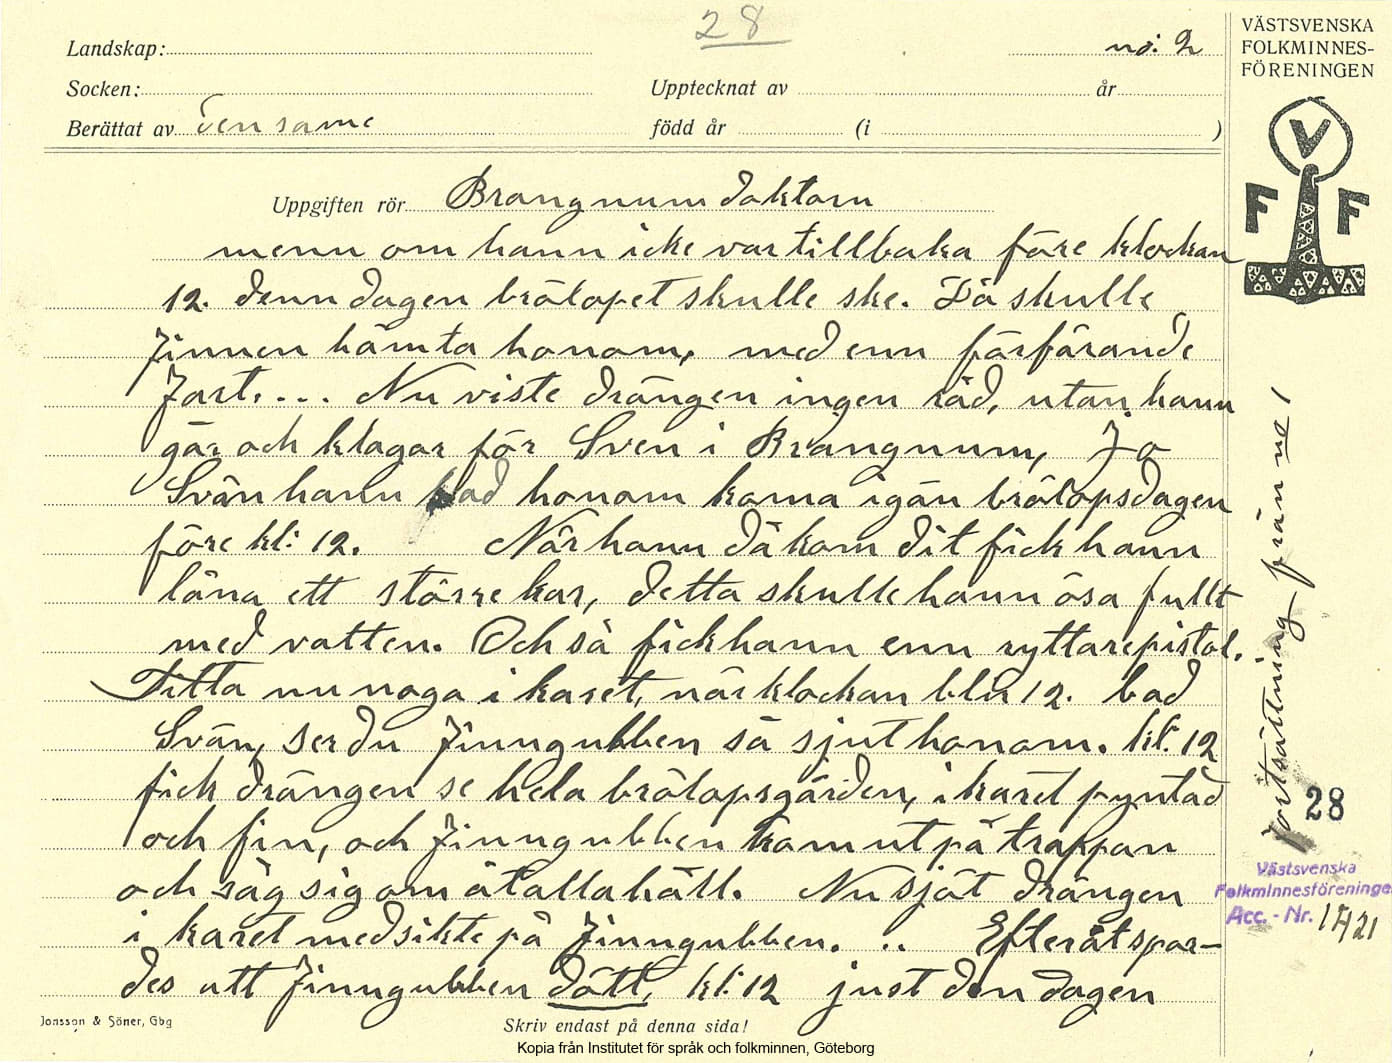 28
Landskap:
no: 2
Socken:
Upptecknat av
år
Berättat av den same
född år
(i
)
VÄSTSVENSKA
FOLKMINNES-
FÖRENINGEN
V
F F
Uppgiften rör Brangnum doktorn
menn om hann icke var tillbaka före klockan
12. denn dagen brölopet skulle ske. Då skulle
Finnen hämta honom, med enn förfärande
fart. ... Nu viste drängen ingen råd, utan hann
går och klagar för Sven i Brangnum, Jo
Svän hann bad honom koma igän brölopsdagen
före kl: 12. När hann då kom dit fick hann
låna ett större kar, detta skulle hann ösa fullt
med vatten. Och så fick hann enn ryttarepistol.
Titta nu noga i karet, när klockan blir 12. bad
Svän, ser du Finngubben så sjut honom. kl: 12
fick drängen se hela brölopsgården, i karet pyntad
och fin, och Finngubben kom ut på trappan
och såg sig om åt alla håll. Nu sjöt drängen
i karet med sikte på Finngubben. .. Efteråt spor-
des att Finngubben dött, kl: 12 just den dagen
fortsättning från no 1
28
Västsvenska
Folkminnesföreninge
Acc.-Nr. 1721
Jonsson & Söner, Gbg
Skriv endast på denna sida!
Kopia från Institutet för språk och folkminnen, Göteborg